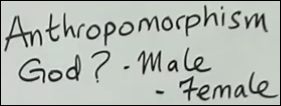 Anthropomorphism
God? - Male
- Female